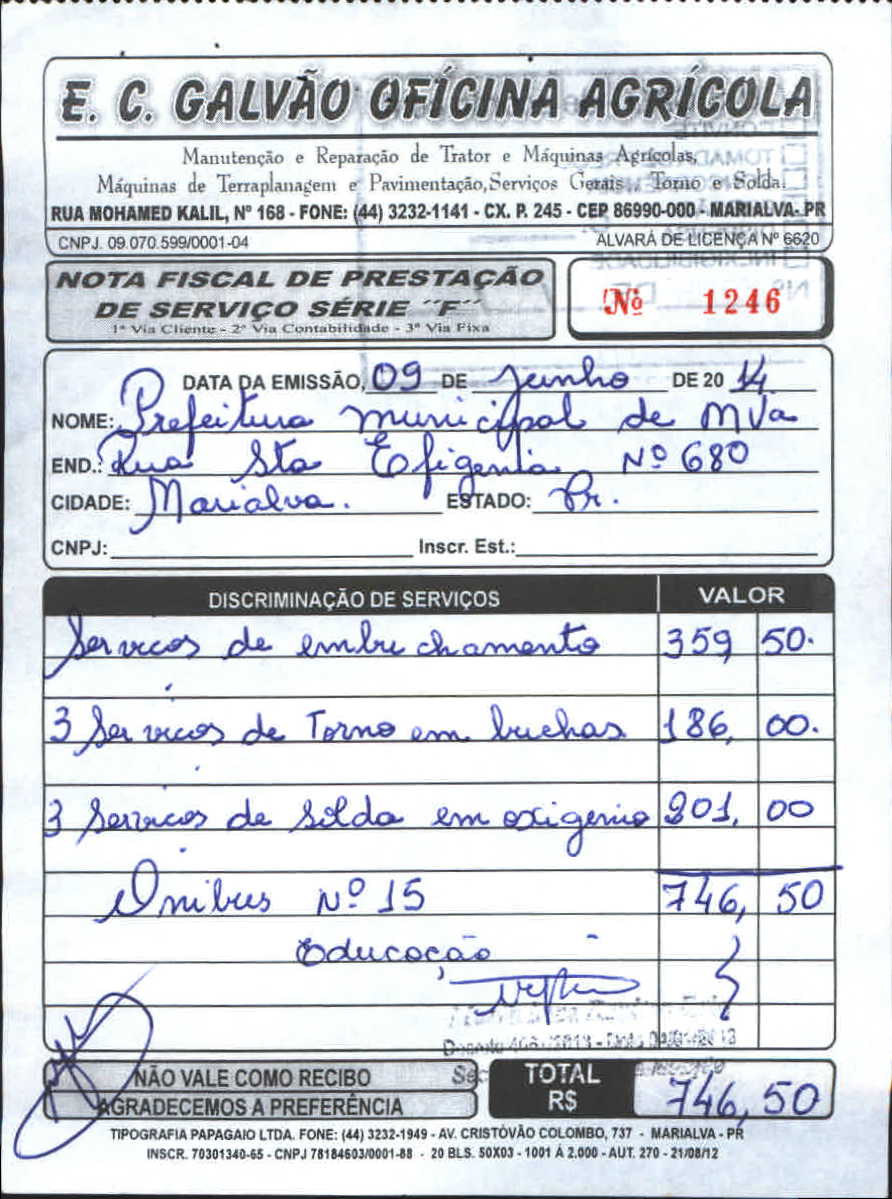 E. C. GALVÃO OFÍCINA AGRÍCOLA
Manutenção e Reparação de Trator e Máquinas Agrícolas,
Máquinas de Terraplanagem e Pavimentação, Serviços Gerais, Torno e Solda.
RUA MOHAMED KALIL, Nº 168 - FONE: (44) 3232-1141 - CX. P. 245 - CEP 86990-000 - MARIALVA- PR
CNPJ. 09.070.599/0001-04 ALVARÁ DE LICENÇA Nº 6620
NOTA FISCAL DE PRESTAÇÃO
DE SERVIÇO SÉRIE "F"
1ª Via Cliente - 2ª Via Contabilidade - 3ª Via Fixa
Nº 1246
DATA DA EMISSÃO, 09 DE Junho DE 20 14
NOME: Prefeitura municipal de MVa
END.: Rua Sta Efigenia Nº 680
CIDADE: Marialva. ESTADO: Pr.
CNPJ: Inscr. Est.:
DISCRIMINAÇÃO DE SERVIÇOS VALOR
Servicos de embuchamento 359 50.
3 Servicos de Torno em buchas 186, 00.
3 Servicos de Solda em oxigenio 201, 00
Onibus Nº 15 746, 50
Educação
NÃO VALE COMO RECIBO
AGRADECEMOS A PREFERÊNCIA
TOTAL R$ 746,50
TIPOGRAFIA PAPAGAIO LTDA. FONE: (44) 3232-1949 - AV. CRISTÓVÃO COLOMBO, 737 - MARIALVA - PR
INSCR. 70301340-65 - CNPJ 78184603/0001-88 - 20 BLS. 50X03 - 1001 Á 2.000 - AUT. 270 - 21/08/12